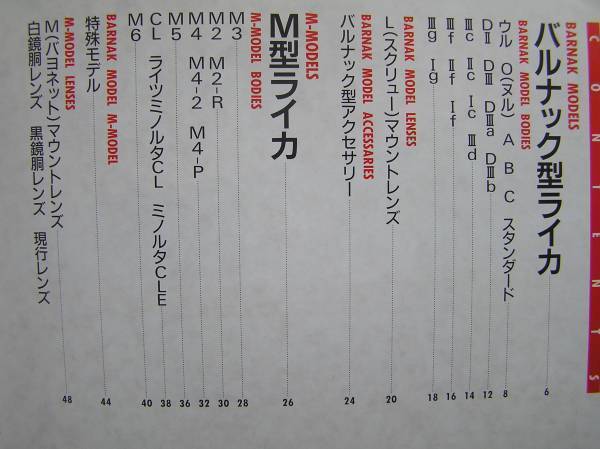 CONTENTS
BARNAK MODELS
バルナック型ライカ 6
BARNAK MODEL BODIES
ウル O(ヌル) A B C スタンダード 8
DⅡ DⅢ DⅢa DⅢb 12
Ⅲc Ⅱc Ⅰc Ⅲd 14
Ⅲf Ⅱf Ⅰf 16
Ⅲg Ⅰg 18
BARNAK MODEL LENSES
L(スクリュー)マウントレンズ 20
BARNAK MODEL ACCESSARIES
バルナック型アクセサリー 24
M-MODELS
M型ライカ 26
M-MODEL BODIES
M3 28
M2 M2-R 30
M4 M4-2 M4-P 32
M5 36
CL ライツミノルタCL ミノルタCLE 38
M6 40
BARNAK MODEL M-MODEL
特殊モデル 44
M-MODEL LENSES
M(バヨネット)マウントレンズ 48
白鏡胴レンズ 黒鏡胴レンズ 現行レンズ